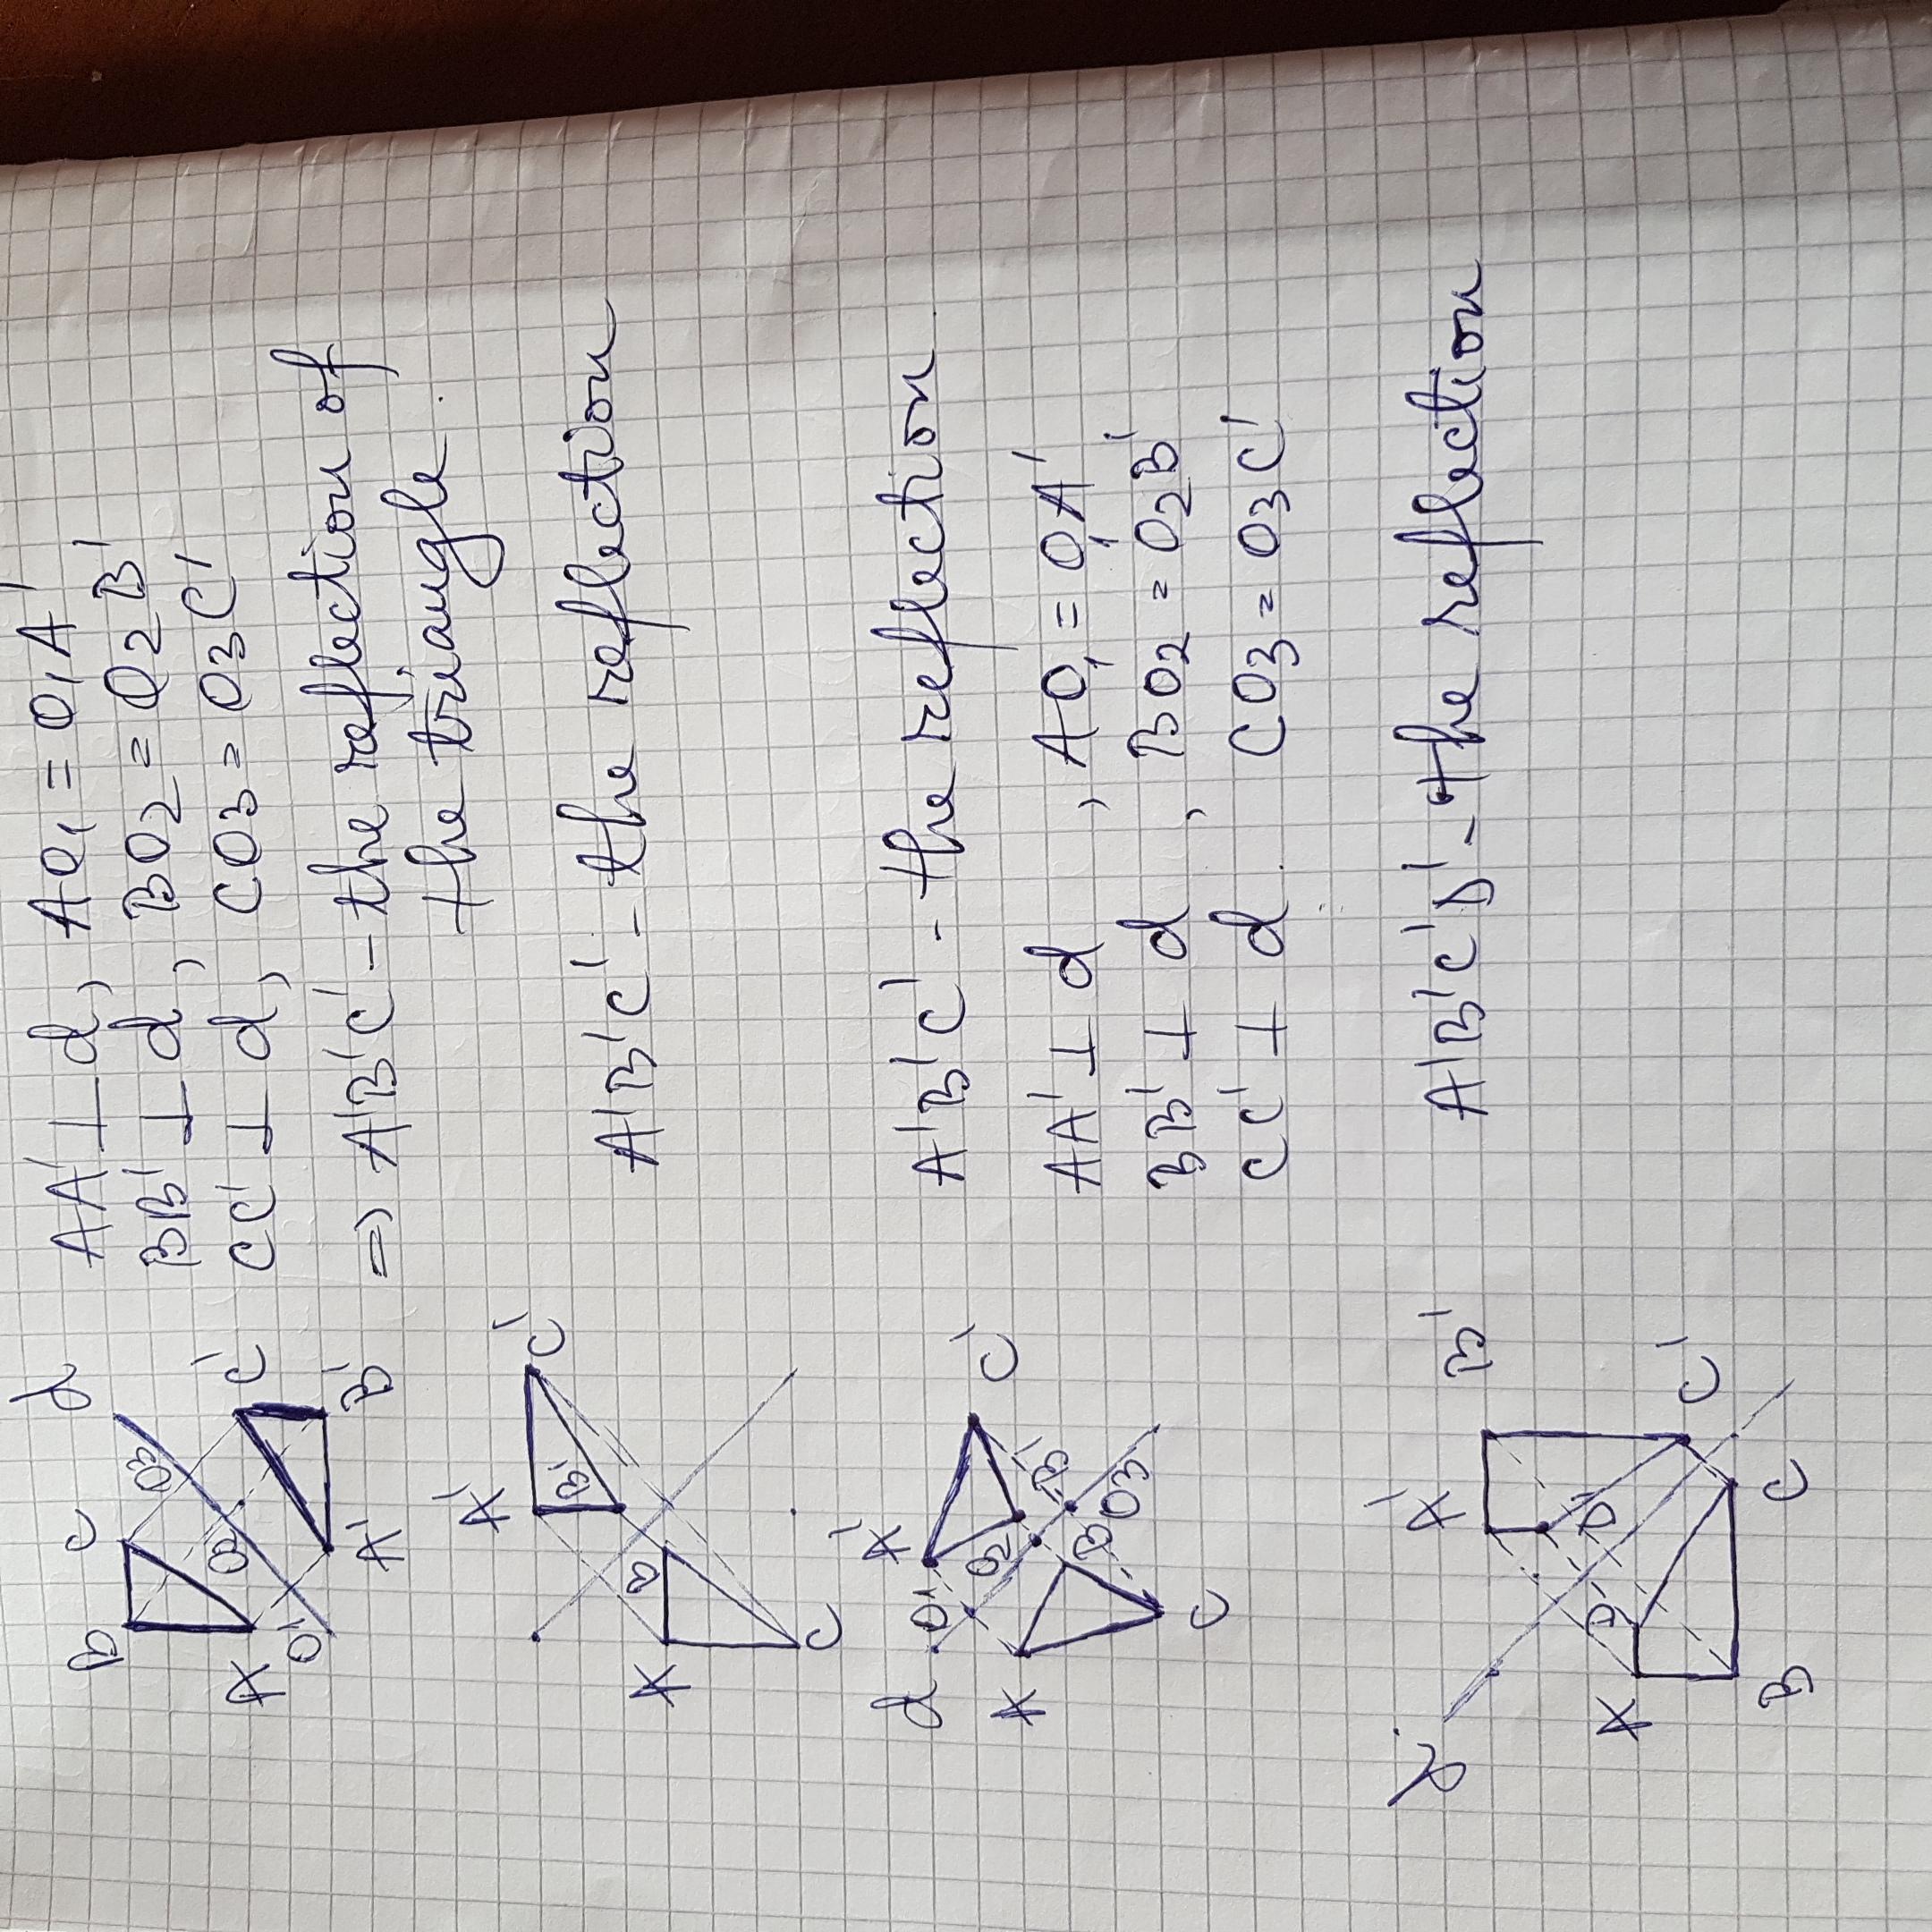 d
AA' ⊥ d, AO₁ = O₁A'
B C O3
BB' ⊥ d, BO2 = O2B'
A O2 C'
CC' ⊥ d, CO3 = O3C'
O' A' B'
=> A'B'C' - the reflection of
the triangle.
A' C'
B'
A B
C
A'B'C' - the reflection
A' C'
d O' O2 B'
A B O3
C
A'B'C' - the reflection
AA' ⊥ d , AO₁ = O₁A'
BB' ⊥ d , BO2 = O2B'
CC' ⊥ d . CO3 = O3C'
d A' B'
D D'
A C'
B C
A'B'C'D' - the reflection